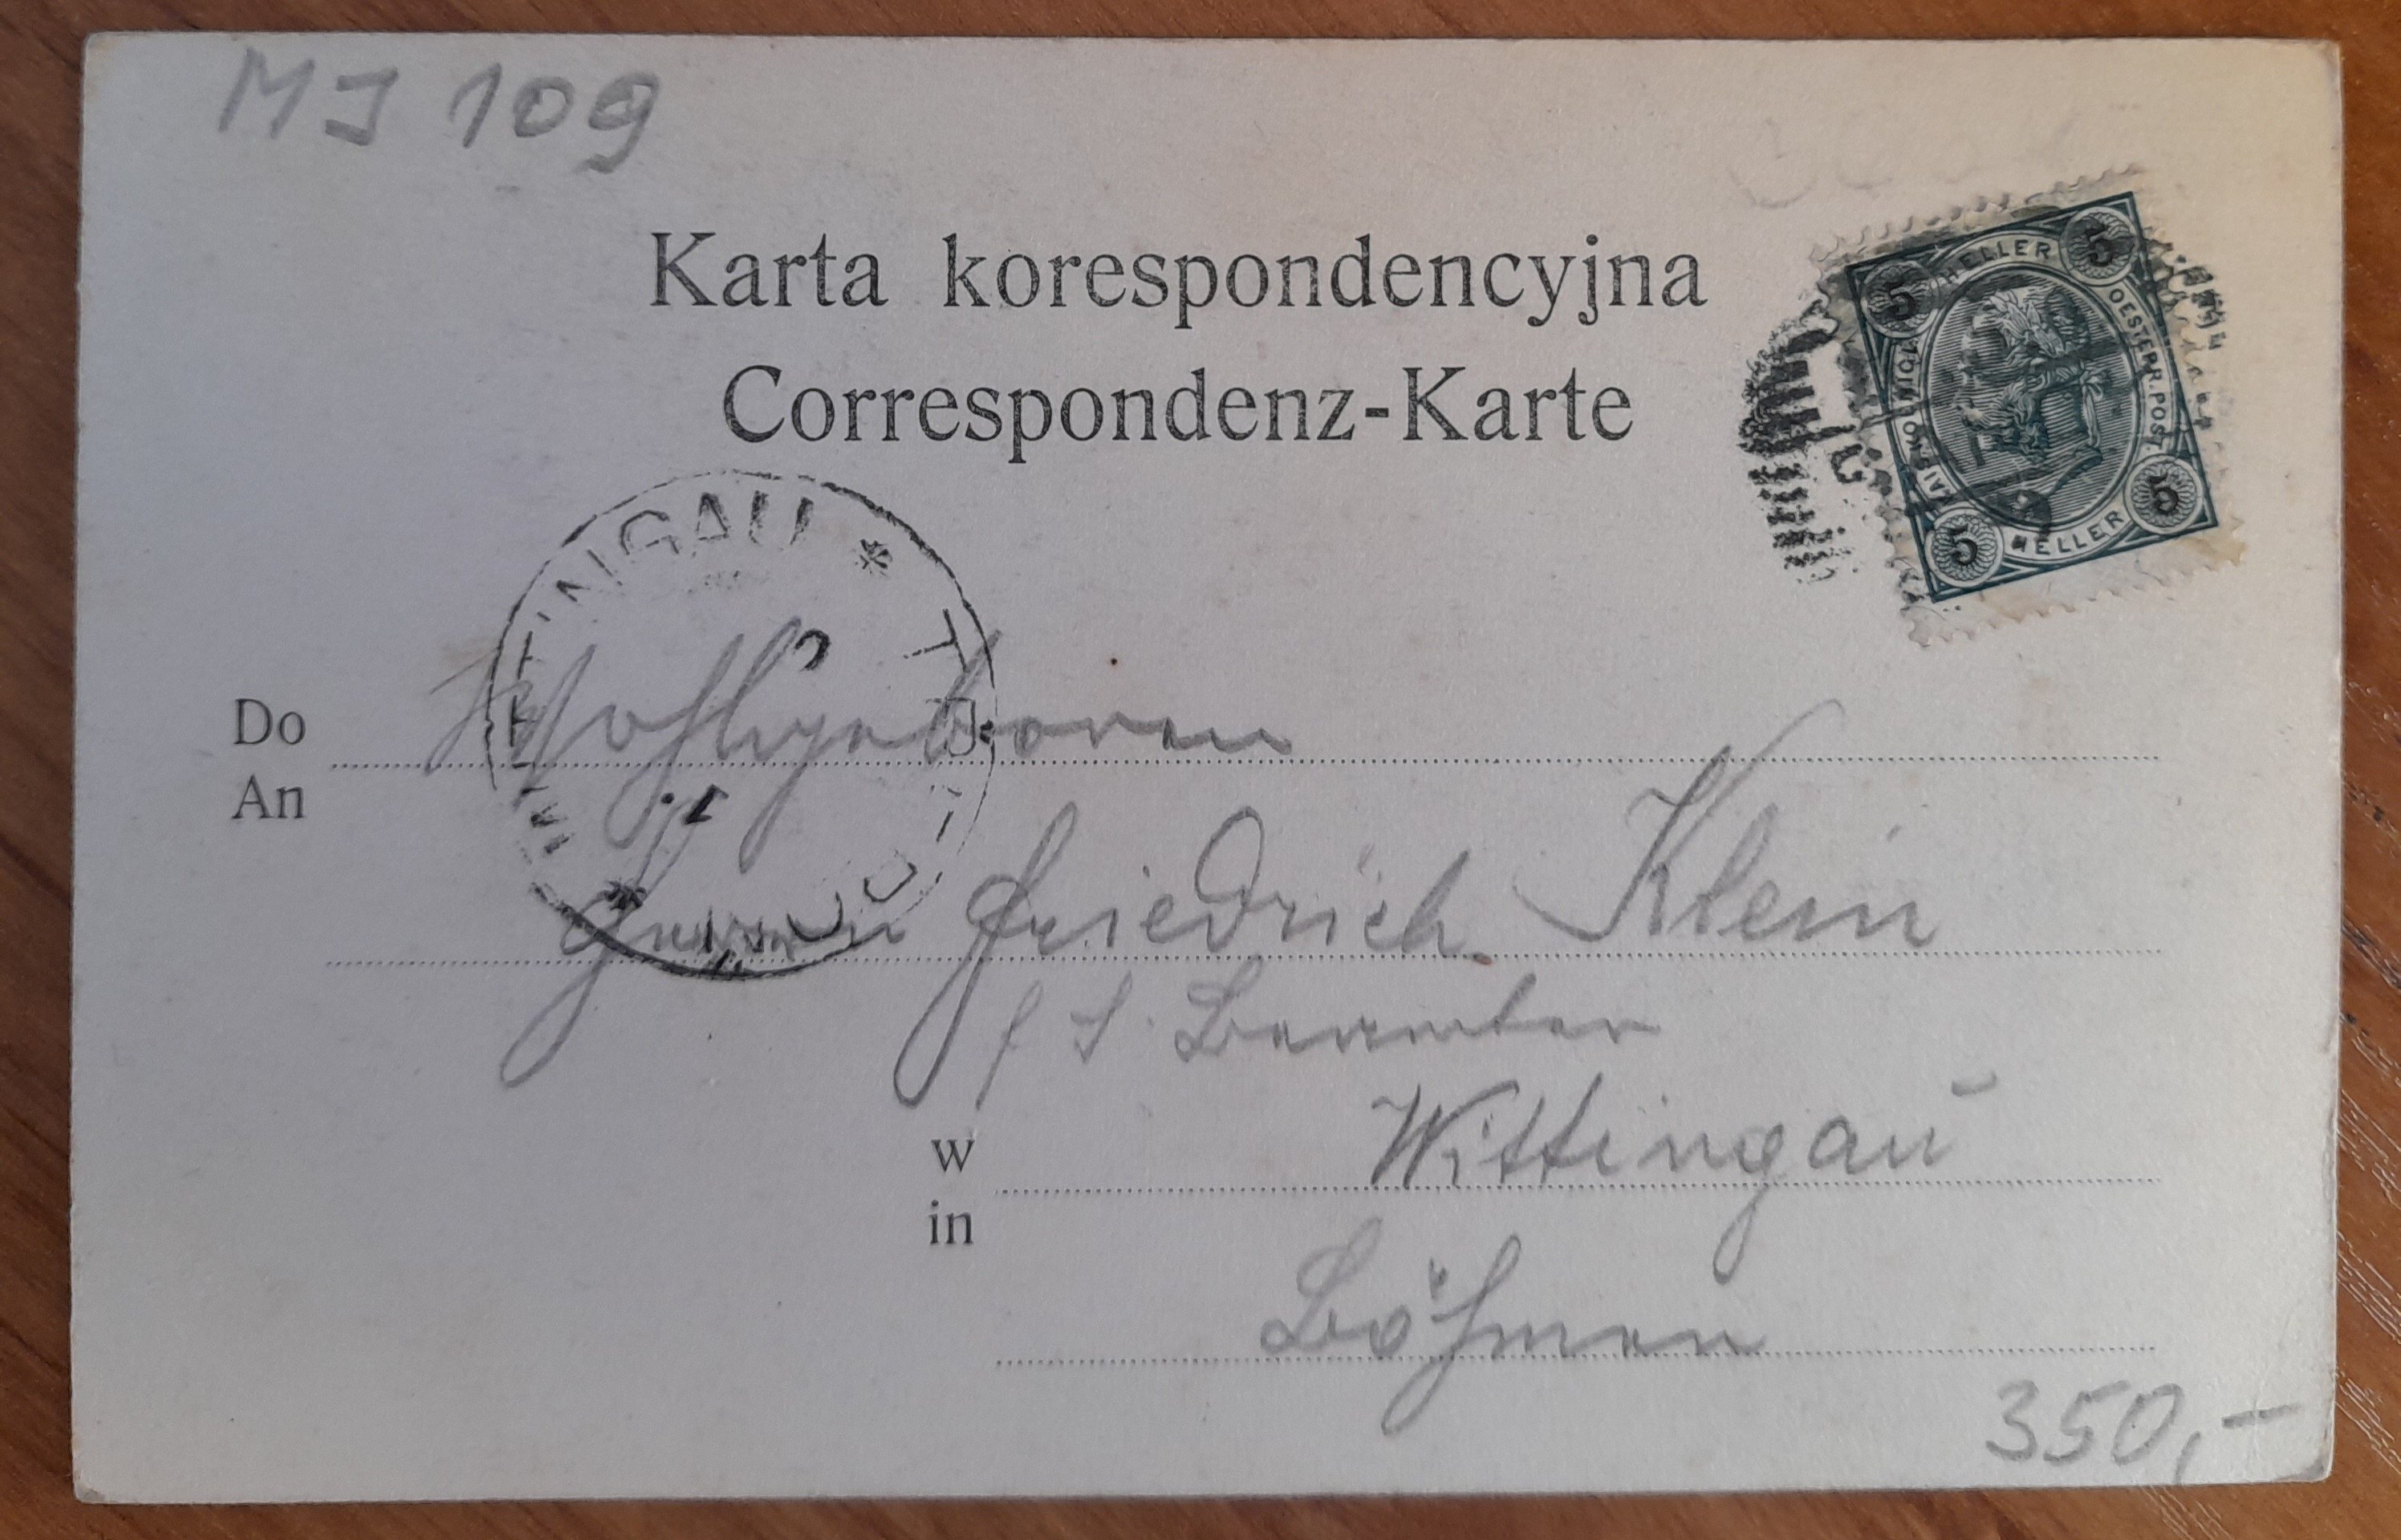 MJ 109
Karta korespondencyjna
Correspondenz-Karte
5 HELLER 5
OESTERR. POST.
5 HELLER 5
WITTINGAU * TŘEBOŇ *
Do Wohlgeboren
An
Herrn Friedrich Klein
f. S. Beamter
w Wittingau
in
Böhmen
350,-